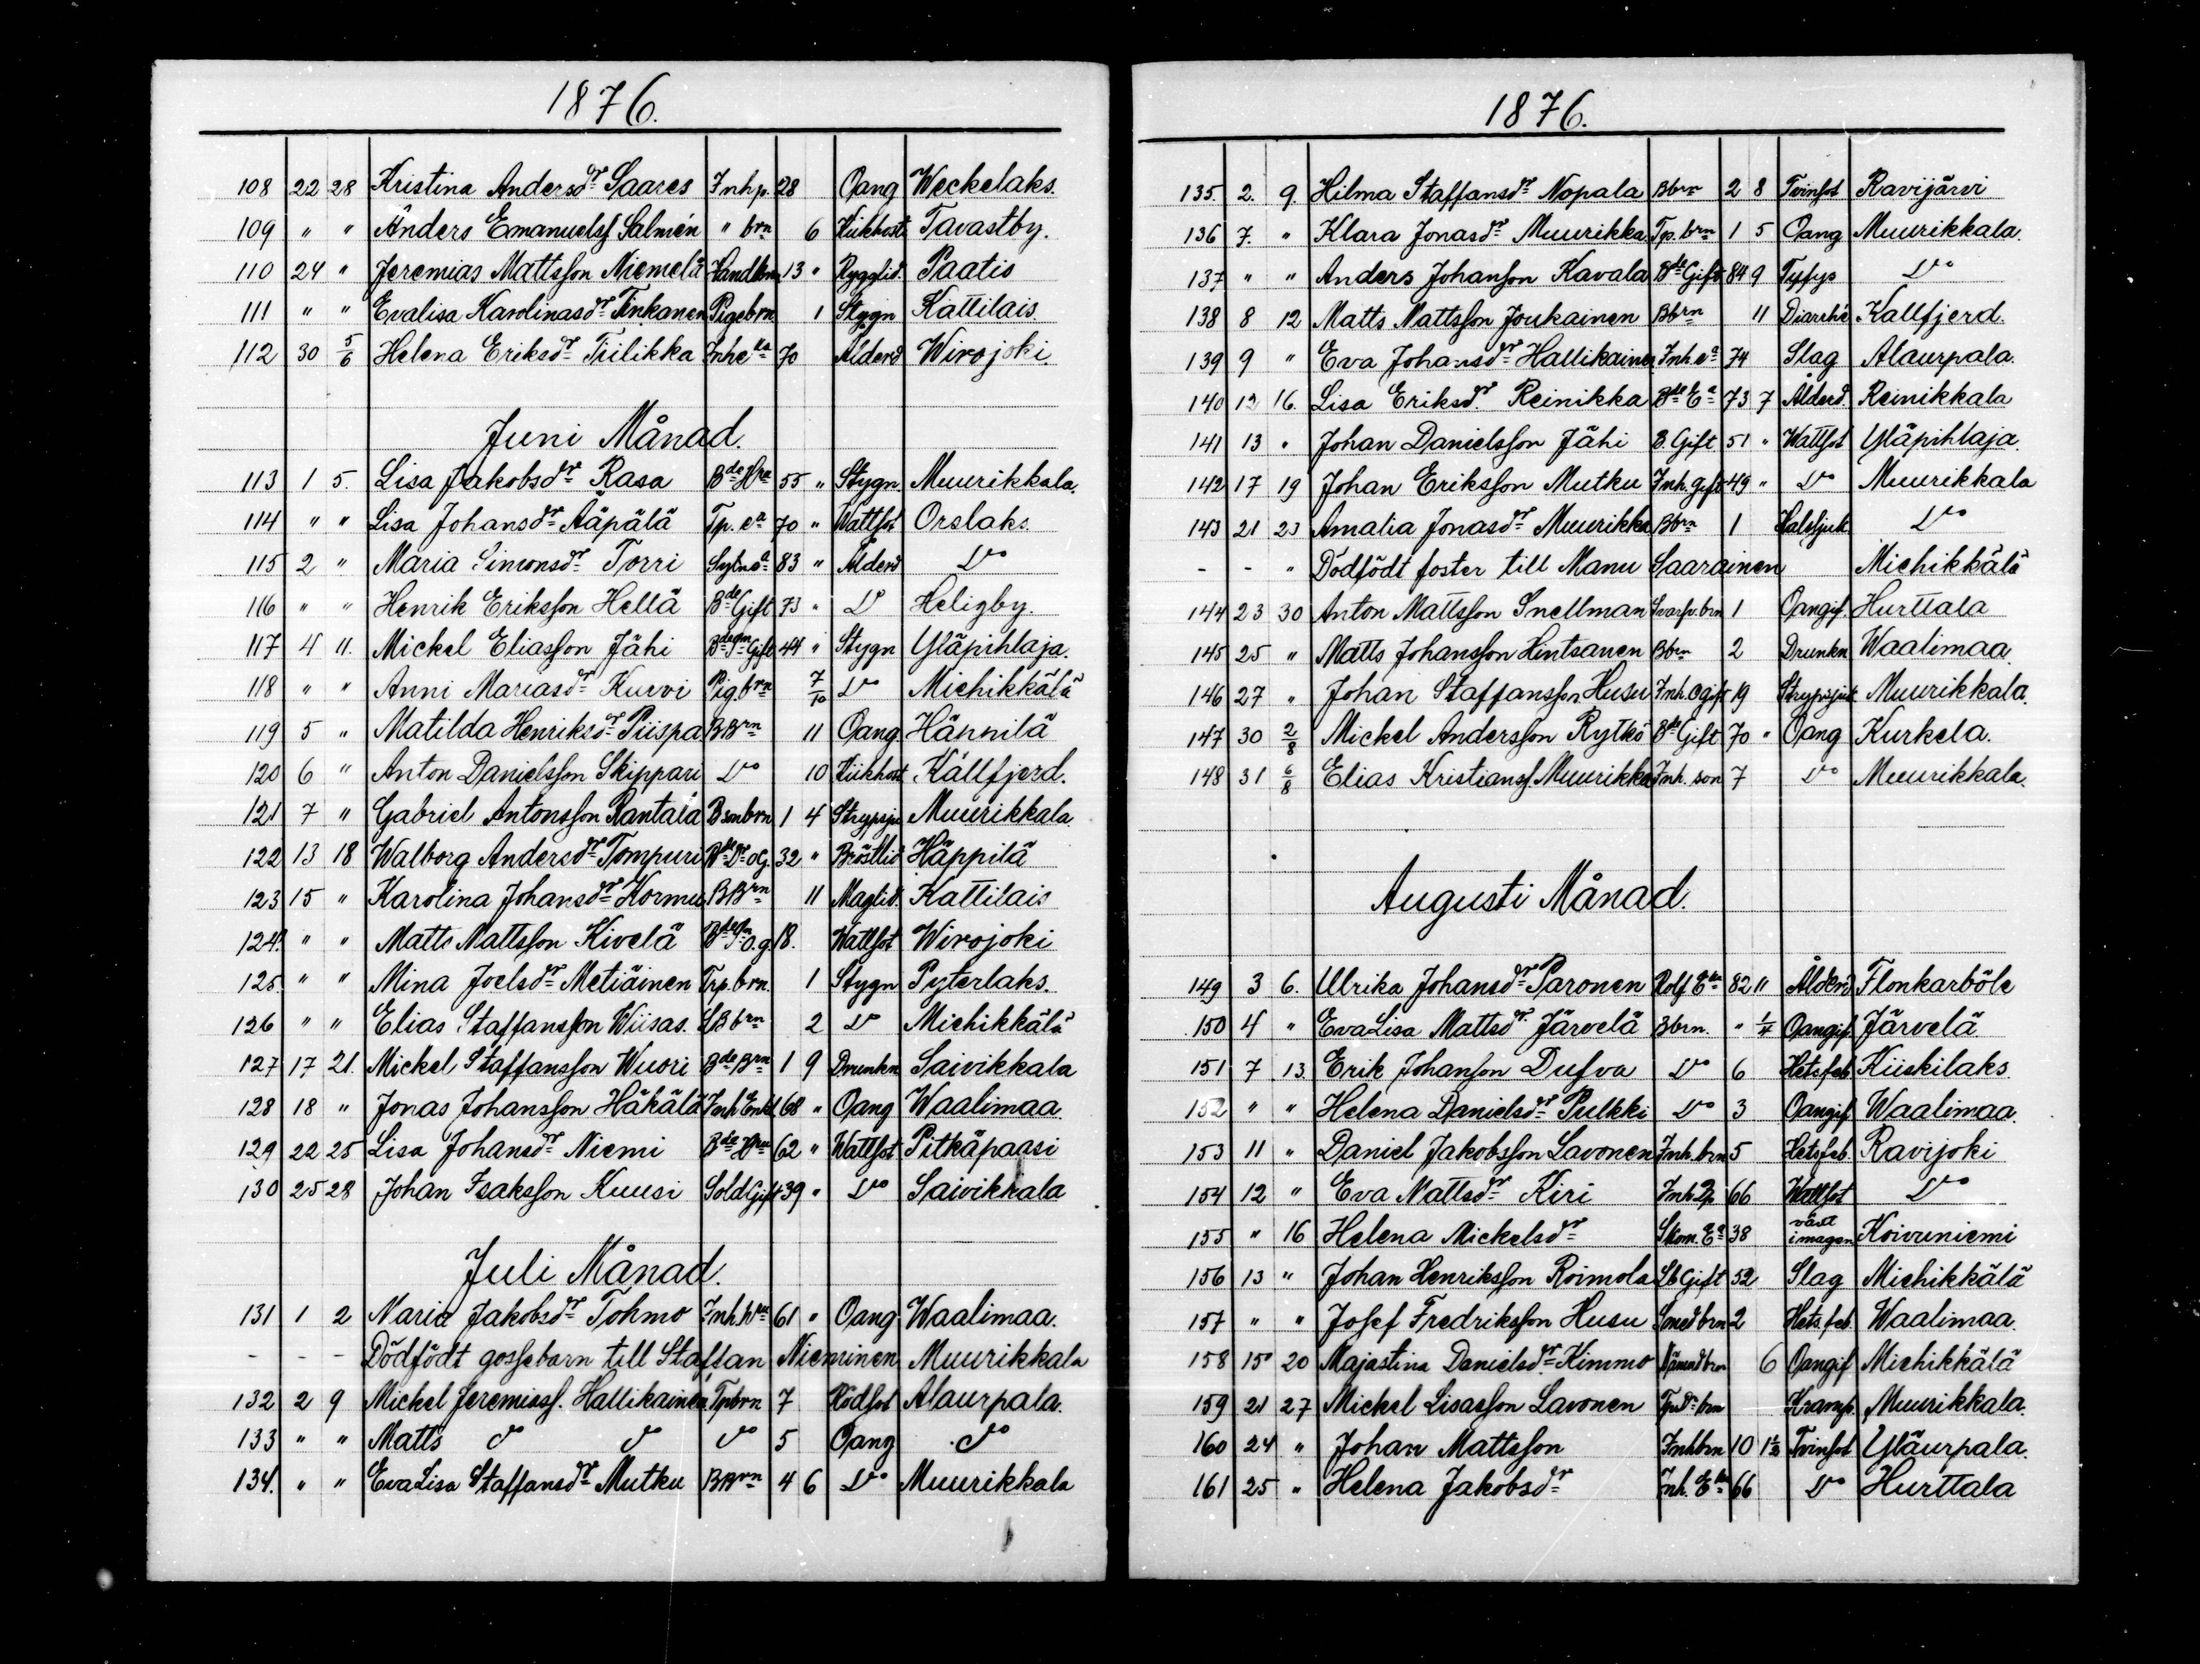 1876.
108 22 28 Kristina Andersdr Saares Inhp. 28 Oang Weckelaks.
109 " " Anders Emanuelsf Salmén " brn 6 Kikhost Tavastby.
110 24 " Jeremias Mattsson Niemelä 13 " Rygglid. Paatis
111 " " Evalisa Karolinasdr Tinkanen Pigebrn 1 Stygn Kattilais
112 30 5/6 Helena Eriksdr Tiilikka Inh ea 70 Ålderd Wirojoki.
Juni Månad.
113 1 5. Lisa Jakobsdr Rasa Bde Hru 55 " Stygn. Muurikkala.
114 " " Lisa Johansdr Ääpälä Tp. ea 70 " Wattsot Orslaks.
115 2 " Maria Simonsdr Torri 83 " Ålderd Do
116 " " Henrik Eriksson Hellä Bde Gift 73 " Do Heligby.
117 4 11. Mickel Eliasson Jähi Bde Sn Gift 44 " Stygn Yläpihlaja.
118 " " Anni Mariasdr Kurvi Pig.brn 7/10 Do Michikkälä
119 5 " Matilda Henriksdr Piispa BBrn 11 Oang. Häppilä
120 6 " Anton Danielsson Skippari Do 10 Kikhost Kållfjerd.
121 7 " Gabriel Antonsson Rantala Bsonbrn 1 4 Strypsju Muurikkala.
122 13 18 Walborg Andersdr Tompuri Bde Dr OG. 32 " Bröstlid Häppilä
123 15 " Karolina Johansdr Kormu BBrn 11 Maglid. Kattilais
124. " " Matts Mattsson Kivelä Bde Sn o.g 18. Wattsot Wirojoki
125. " " Mina Joelsdr Metiäinen Trp. brn. 1 Stygn Pyterlaks.
126 " " Elias Staffansson Wiisas. LB brn 2 Do Michikkälä
127 17 21. Mickel Staffansson Wuori Bde Brn 1 9 Drunkn Saivikkala
128 18 " Jonas Johansson Häkälä Inh Enkl 68 " Oang Waalimaa.
129 22 25 Lisa Johansdr Niemi Bde Hru 62 " Wattsot Pitkäpaasi
130 25 28 Johan Isaksson Kuusi Sold Gift 39 " Do Saivikkala
Juli Månad.
131 1 2 Maria Jakobsdr Tohmo Inh. Hru 61 " Oang Waalimaa.
- - - Dödfödt gossebarn till Staffan Nieminen Muurikkala
132 2 9 Mickel Jeremiasf. Hallikainen Tpbrn 7 Rödsot Alaurpala.
133 " " Matts do do do 5 Oang do
134. " " EvaLisa Staffansdr Mutku BBrn 4 6 Do Muurikkala
1876.
135. 2. 9. Hilma Staffansdr Nopala Bbrn 2 8 Tvinsot Ravijärvi
136 7. " Klara Jonasdr Muurikka Tp. brn 1 5 Oang Muurikkala.
137 " " Anders Johanson Kavala Bde Gift 84 9 Tyfus Do
138 8 12 Matts Mattsson Joukainen Bbrn 11 Diarrhé Kallfjerd.
139 9 " Eva Johansdr Hallikainen Inh. ea 74 Slag Alaurpala.
140 12 16. Lisa Eriksdr Reinikka Bde Ea 73 7 Ålderd. Reinikkala
141 13 " Johan Danielsson Jähi B. Gift 51 " Wattsot Yläpihlaja.
142 17 19 Johan Eriksson Mutku Inh. gift 49 " Do Muurikkala
143 21 23 Amalia Jonasdr Muurikka Bbrn 1 Halssjuk Do
- - " Dödfödt foster till Manu Saarainen Michikkälä
144 23 30 Anton Mattsson Snellman Svarfv.brn 1 Oangif. Hurttala
145 25 " Matts Johansson Hintsanen Bbrn 2 Drunkn Waalimaa.
146 27 " Johan Staffansson Husu Inh. Ogift 19 Strypsjuk Muurikkala.
147 30 2/8 Mickel Andersson Rytkö Bde Gift 70 " Oang Kurkela.
148 31 6/8 Elias Kristiansf. Muurikka Inh. son 7 Do Muurikkala.
Augusti Månad.
149 3 6. Ulrika Johansdr Paronen 82 11 Ålderd Flonkarböle
150 4 " EvaLisa Mattsdr Järvelä Bbrn. " 1/4 Oangif. Järvelä
151 7 13. Erik Johanson Dufva Do 6 Hetsfeb Kiiskilaks
152 " " Helena Danielsdr Pulkki Do 3 Oangif. Waalimaa.
153 11 " Daniel Jakobsson Lavonen Inh. brn 5 Hetsfeb. Ravijoki
154 12 " Eva Mattsdr Kiri Inh Dp 66 Wattsot Do
155 " 16 Helena Mickelsdr Skom. Ea 38 växt i magen Koivuniemi
156 13 " Johan Henriksson Roimola Lb Gift 52 Slag Michikkälä
157 " " Josef Fredriksson Husu Smedbrn 2 Hets. feb. Waalimaa.
158 15 20 Majastina Danielsdr Kimmo Nämndbrn 6 Oangif Michikkälä
159 21 27 Mickel Lisasson Lavonen Tp Dr brn Kramp. Muurikkala.
160 24 " Johan Mattsson Inhbrn 10 1 1/2 Tvinsot Yläurpala.
161 25 " Helena Jakobsdr Inh. Ea 66 Do Hurttala